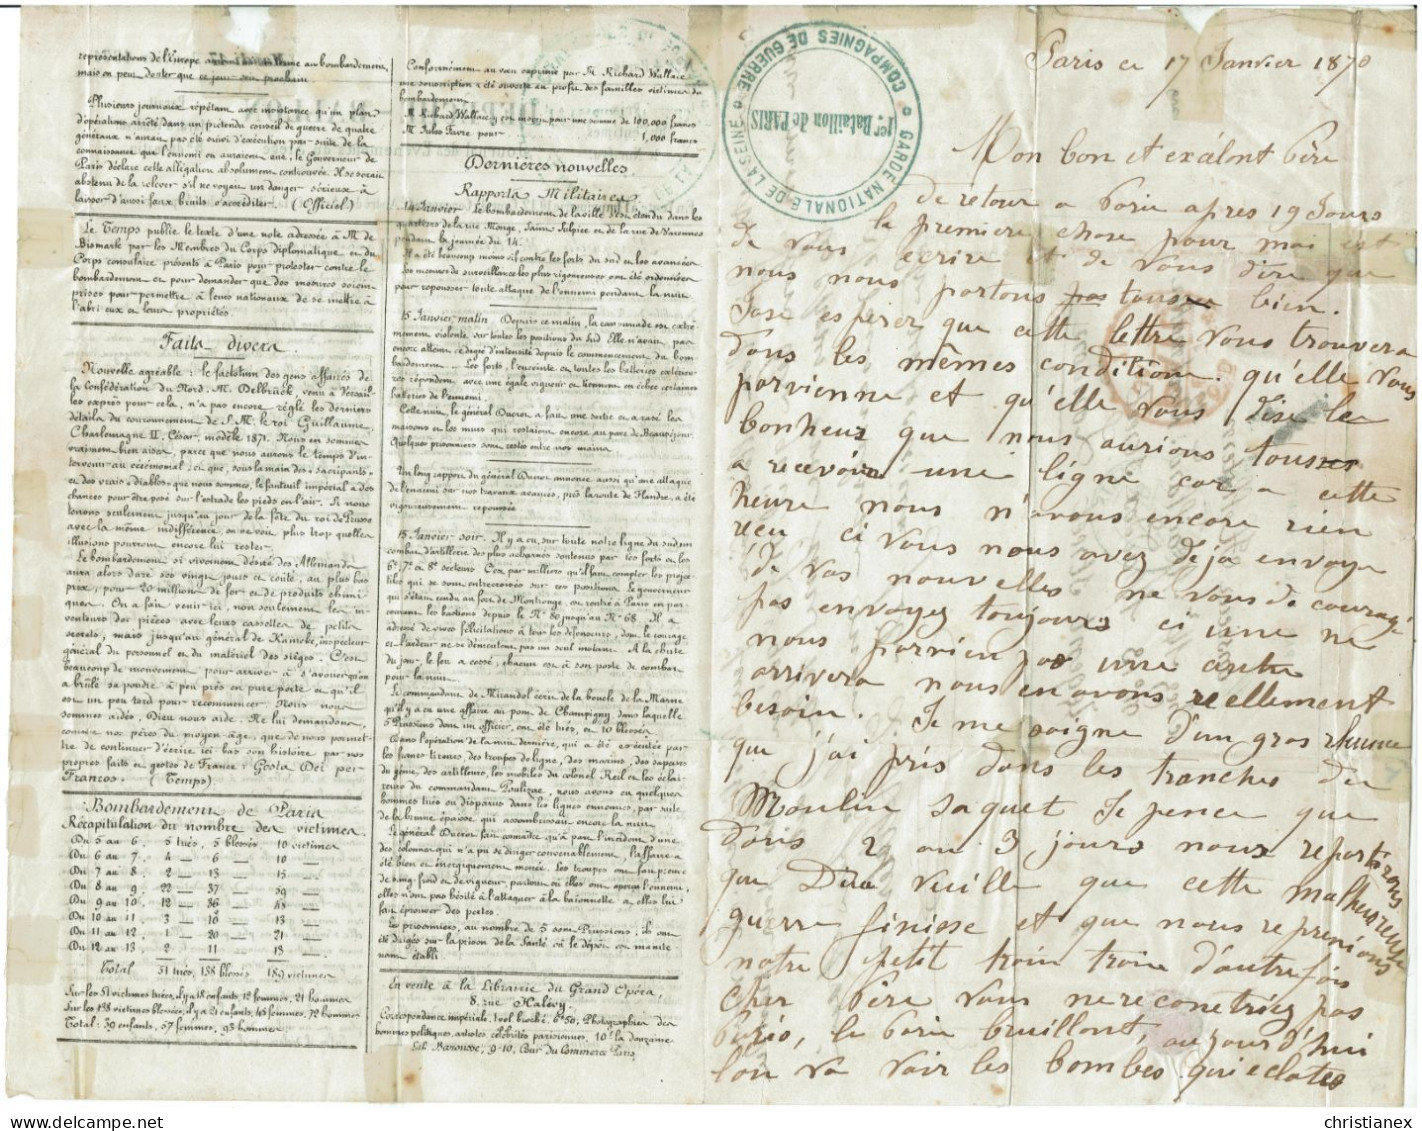 représentations de l'Europe
mais on peut dater que ce jour sera prochain
Plusieurs journaux répétant avec insistance qu'un plan
d'opérations arrêté dans un prétendu conseil de guerre de quatre
généraux n'aurait pas été suivi d'exécution par suite de la
connaissance que l'ennemi en aurait eue, le Gouverneur de
Paris déclare cette allégation absolument controuvée. Il se serait
abstenu de la relever s'il ne voyait un danger sérieux à
laisser d'aussi faux bruits s'accréditer. (Officiel)
Le Temps publie le texte d'une note adressée à M. de
Bismark par les Membres du Corps diplomatique et du
Corps consulaire présents à Paris pour protester contre le
bombardement et pour demander que des mesures soient
prises pour permettre à leurs nationaux de se mettre à
l'abri eux et leurs propriétés.
Faits divers.
Nouvelle agréable : le factotum des gens affairés de
la Confédération du Nord, M. Delbrück, venu à Versail-
les exprès pour cela, n'a pas encore réglé les derniers
détails du couronnement de S. M. le roi Guillaume,
Charlemagne II, César, modèle 1871. Nous en sommes
vraiment bien aises, parce que nous aurons le temps d'in-
tervenir au cérémonial ; et que, sous la main des « sacripants »
et des vrais « diables » que nous sommes, le fauteuil impérial a des
chances pour être posé sur l'estrade les pieds en l'air. Si nous
tenons seulement jusqu'au jour de la fête du roi de Prusse
avec la même indifférence, on ne voit plus trop quelles
illusions pourront encore lui rester.
Le bombardement si vivement désiré des Allemands
aura alors duré ses vingt jours et coûté, au plus bas
prix, pour 20 millions de fer et de produits chimi-
ques. On a fait venir ici, non seulement les in-
venteurs des pièces avec leurs cassettes de petits
secrets, mais jusqu'au général de Kameke, inspecteur
général du personnel et du matériel des sièges. C'est
beaucoup de mouvement pour arriver à s'apercevoir qu'on
a brûlé sa poudre à peu près en pure perte et qu'il
est un peu tard pour recommencer. Nous nous
sommes aidés, Dieu nous aide. Ne lui demandons,
comme nos pères du moyen-âge, que de nous permet-
tre de continuer d'écrire ici bas son histoire par nos
propres faits en gestes de France : Gesta Dei per
Francos. (Temps).
Bombardement de Paris
Récapitulation du nombre des victimes.
Du 5 au 6, 5 tués, 5 blessés 10 victimes
Du 6 au 7, 4 — 6 — 10 —
Du 7 au 8, 2 — 13 — 15 —
Du 8 au 9, 22 — 37 — 59 —
Du 9 au 10, 12 — 36 — 48 —
Du 10 au 11, 3 — 10 — 13 —
Du 11 au 12, 1 — 20 — 21 —
Du 12 au 13 2 11 13 —
Total 51 tués, 138 blessés 189 victimes
Sur les 51 victimes tuées, il y a 18 enfants, 12 femmes, 21 hommes
Sur les 138 victimes blessées, il y a 21 enfants, 45 femmes, 72 hommes
Total : 39 enfants, 57 femmes, 93 hommes.
Conformément au vœu exprimé par M. Richard Wallace
une souscription a été ouverte au profit des familles victimes du
bombardement.
M. Richard Wallace y est inscrit pour une somme de 100,000 francs
M. Jules Favre pour 1,000 francs
Dernières nouvelles
Rapports Militaires
14 Janvier. Le bombardement de la ville s'est étendu dans les
quartiers de la rue Monge, Saint Sulpice et de la rue de Varennes
pendant la journée du 14.
Il a été beaucoup moins vif contre les forts du sud et les avancées
Les mesures de surveillance les plus rigoureuses ont été ordonnées
pour repousser toute attaque de l'ennemi pendant la nuit
15 Janvier, matin. Depuis ce matin, la canonnade est extrê-
mement violente sur toutes les positions du Sud. Elle n'avait pas
encore atteint ce degré d'intensité depuis le commencement du bom-
bardement — Les forts, l'enceinte et toutes les batteries extérieu-
res répondent avec une égale vigueur et l'ennemi
batteries de l'ennemi.
Cette nuit, le général Ducrot a fait une sortie et a rasé les
maisons et les murs qui restaient encore au parc de Beauséjour.
Quelques prisonniers sont restés entre nos mains
Un long rapport du général Ducrot annonce aussi qu'une attaque
de l'ennemi sur nos travaux avancés, près la route de Flandre, a été
vigoureusement repoussée.
15 Janvier, soir. Il y a eu, sur toute notre ligne du sud un
combat d'artillerie des plus acharnés soutenus par les forts et les
6e, 7e et 8e secteurs. C'est par milliers qu'il faut compter les projec-
tiles qui se sont entrecroisés sur ces positions. Le gouverneur
qui s'était rendu au fort de Montrouge, est rentré à Paris en par-
courant les bastions depuis le No 80 jusqu'au No 68. Il a
adressé de vives félicitations à tous les défenseurs, dont le courage
et l'ardeur ne se démentent pas un seul instant. A la chute
du jour, le feu a cessé, chacun est à son poste de combat
pour la nuit.
Le commandant de Mirandol écrit de la boucle de la Marne
qu'il y a eu une affaire au pont de Champigny dans laquelle
5 Prussiens dont un officier, ont été tués, et 10 blessés
Dans l'opération de la nuit dernière, qui a été exécutée par
les francs-tireurs, des troupes de ligne, des marins, des sapeurs
du génie, des artilleurs, les mobiles du colonel Reil et les éclai-
reurs du commandant Poulizac, nous avons eu quelques
hommes tués ou disparus dans les lignes ennemies, par suite
de la brume épaisse qui assombrissait encore la nuit.
Le général Ducrot fait connaître qu'à part l'incident d'une
des colonnes qui n'a pu se diriger convenablement, l'affaire a
été bien et énergiquement menée. Les troupes ont fait preuve
de sang-froid et de vigueur, partout où elles ont aperçu l'ennemi,
elles n'ont pas hésité à l'attaquer à la baïonnette et elles lui
fait éprouver des pertes.
Les prisonniers, au nombre de 5 sont Prussiens ; ils ont
été dirigés sur la prison de la Santé où le dépôt en mainte-
nant établi.
En vente à la Librairie du Grand Opéra,
8, rue Halévy.
Correspondance impériale, 1 vol. broché, 6f50, Photographies des
hommes politiques, artistes, célébrités parisiennes, 10f la douzaine
Lith. Barousse, 9-10, Cour du Commerce Paris.
GARDE NATIONALE DE LA SEINE
COMPAGNIES DE GUERRE
1er Bataillon de PARIS
Paris ce 17 Janvier 1870
Mon bon et exélent Père
De rétour a Paris apres 19 Jours
la première chose pour moi est
de vous écrire et de vous dire que
nous nous portons pas tous bien.
Jose espérer que cette lettre vous trouvera
dans les mêmes condition. qu'elle vous
parvienne et qu'elle vous dise le
bonheur que nous aurions tous
a recevoir une ligne car a cette
heure nous n'avons encore rien
réçu, ci vous nous avez déja envoyé
de vos nouvelles ne vous de couragé
pas envoyez toujours ci une ne
nous parvien pas une autre
arrivera nous en avons réellement
besoin. Je me soigne d'un gros rhume
que j'ai pris dans les tranches du
Moulin saquet Je pence que
dans 2 ou 3 jours nous repartirons
que Dieu veuille que cette malheureuse
guerre finisse et que nous reprenions
notre petit train train d'autrefois
Cher Père vous ne reconetriez pas
Paris, le Paris bruillant, aujourd'hui
l'on va voir les bombes qui eclates
christianex